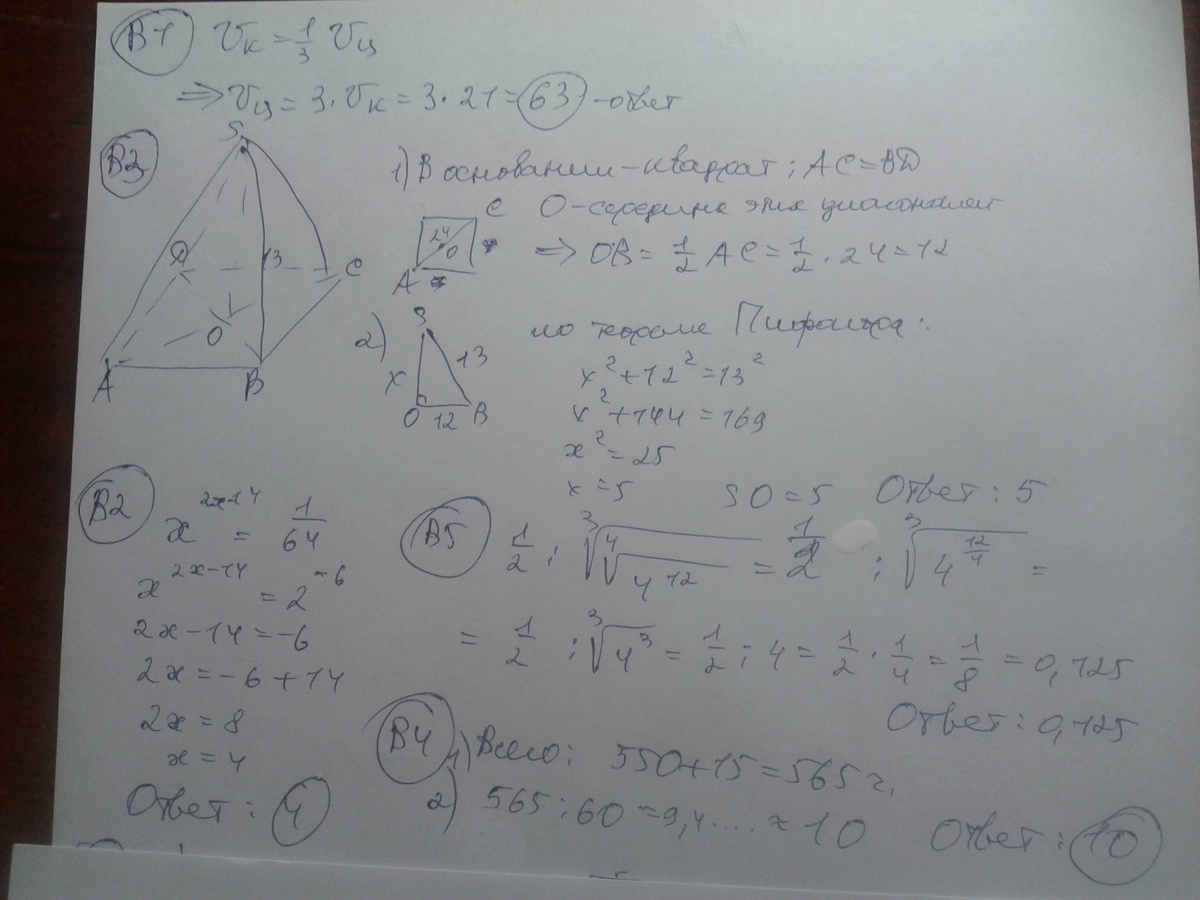 В1 Vк = 1/3 Vц
⇒ Vц = 3 · Vк = 3 · 21 = 63 - ответ
В3
S
D 13 C
O
A B
1) В основании - квадрат; AC = BD
O - середина этих диагоналей
C
24
O
A
⇒ OB = 1/2 AC = 1/2 · 24 = 12
2)
S
x 13
O 12 B
по теореме Пифагора:
x² + 12² = 13²
x² + 144 = 169
x² = 25
x = 5 SO = 5 Ответ: 5
В2
x^(2x-14) = 1/64
x^(2x-14) = 2^(-6)
2x - 14 = -6
2x = -6 + 14
2x = 8
x = 4
Ответ: 4
В5 1/2 : ∛(∜(4^12)) = 1/2 : ∛(4^(12/4)) =
= 1/2 : ∛(4³) = 1/2 : 4 = 1/2 · 1/4 = 1/8 = 0,125
Ответ: 0,125
В4 1) Всего: 550 + 15 = 565 г.
2) 565 : 60 = 9,4.... ≈ 10 Ответ: 10